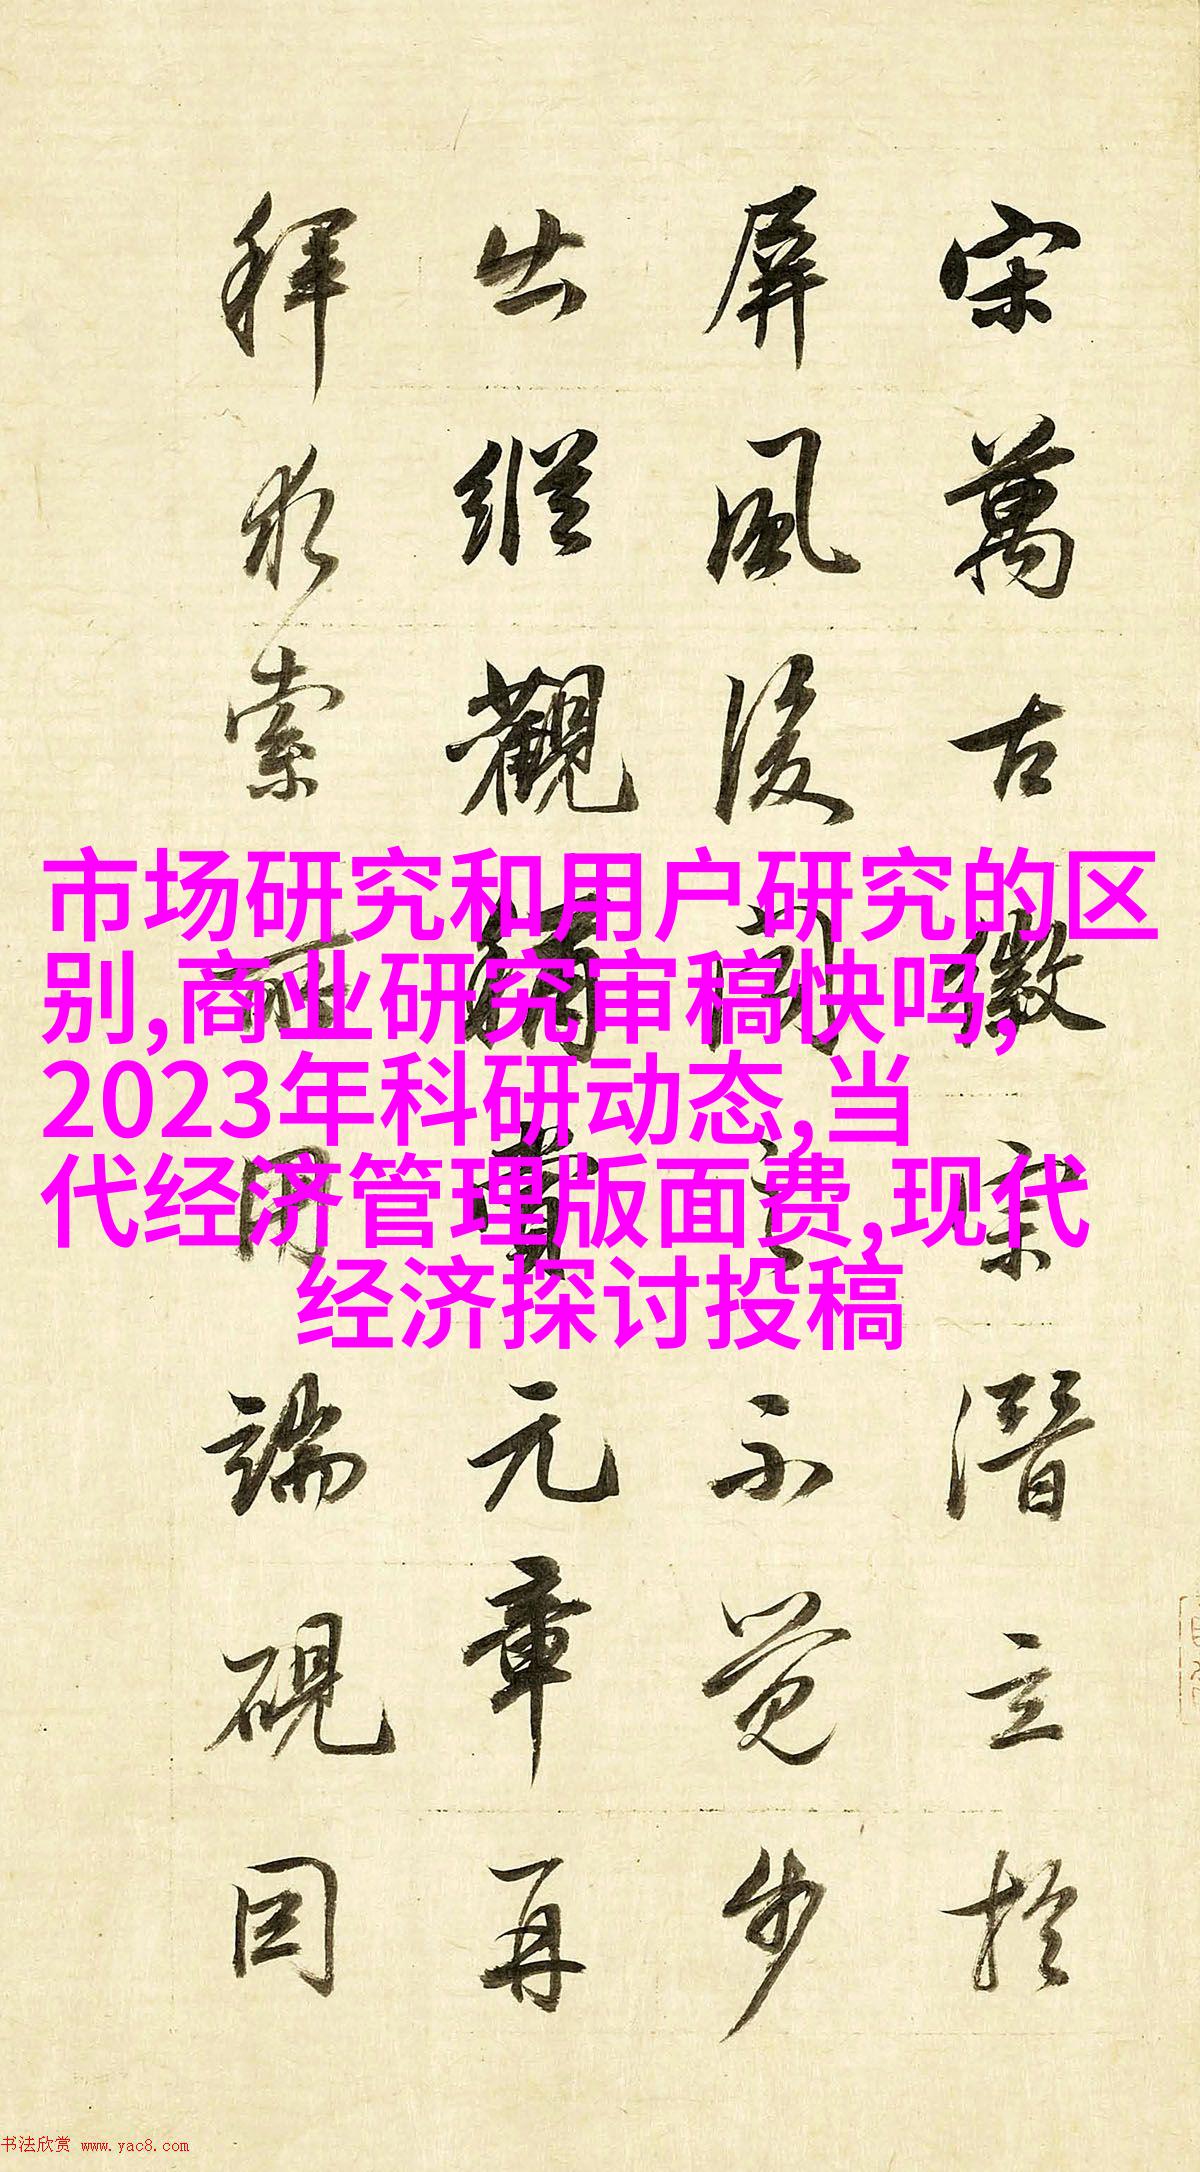 宋萬古徽宗潛立於
屏風後聞之不覺步
出縱觀稱賞元章再
拜求索所用端硯因
市场研究和用户研究的区
别,商业研究审稿快吗,
2023年科研动态,当
代经济管理版面费,现代
经济探讨投稿
书法欣赏 www.yac8.com